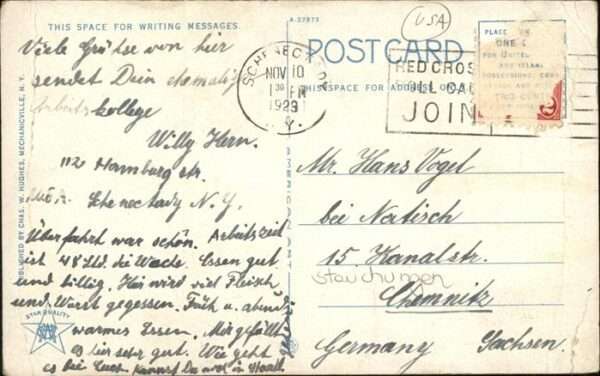 THIS SPACE FOR WRITING MESSAGES.
Viele Grüße von hier
sendet Dein ehemalig
Arbeitskollege
Willy Hern.
112 Hamburg str.
Schenectady N.Y.
Überfahrt war schön. Arbeitszeit
ist 48 Std. die Woche. Essen gut
und billig. Hier wird viel Fleisch
und Wurst gegessen. Früh u. abend
warmes Essen. Mir gefällt
es hier sehr gut. Wie geht
es bei Euch kannst Du mal
PUBLISHED BY CHAS. W. HUGHES, MECHANICVILLE, N.Y.
STAR QUALITY
A-27873
USA
POST CARD
THIS SPACE FOR ADDRESS ONLY
SCHENECTADY
NOV 10
1 30 PM
1929
N.Y.
RED CROSS
ROLL CALL
JOIN
PLACE
ONE
FOR UNITED
AND ISLAND
POSSESSIONS,
TWO CENTS
Mr. Hans Vogel
bei Natisch
15. Kanalstr.
Stauchungen
Chemnitz
Germany Sachsen.